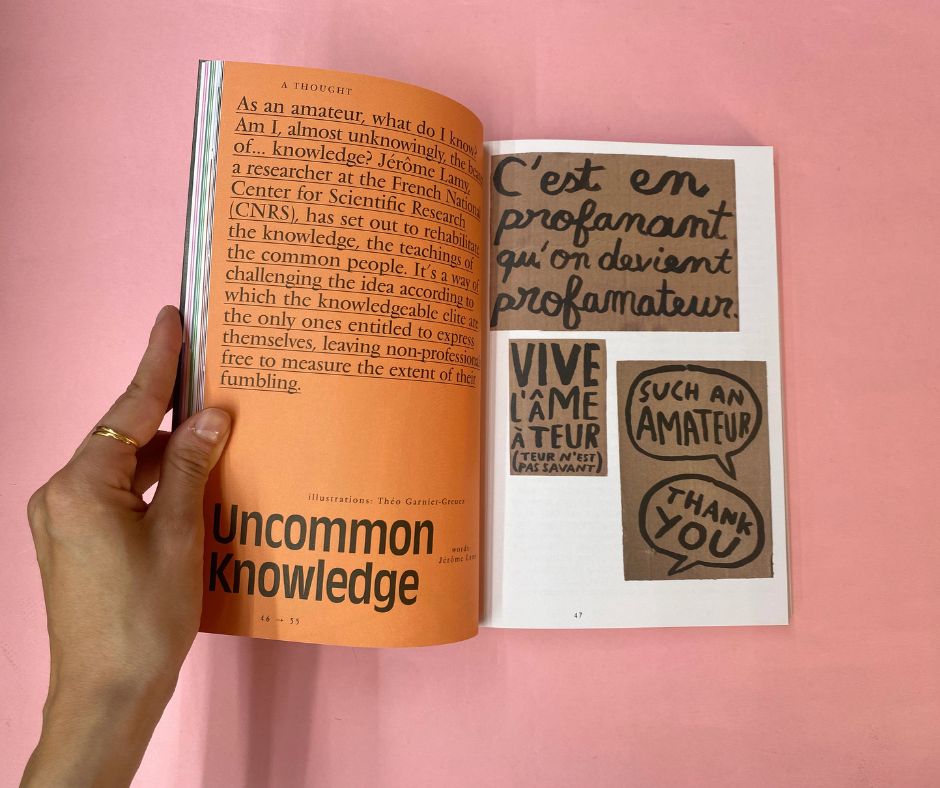 A THOUGHT
As an amateur, what do I know?
Am I, almost unknowingly, the
of... knowledge? Jérôme Lamy,
a researcher at the French National
Center for Scientific Research
(CNRS), has set out to rehabilitate
the knowledge, the teachings of
the common people. It's a way of
challenging the idea according to
which the knowledgeable elite are
the only ones entitled to express
themselves, leaving non-professional
free to measure the extent of their
fumbling.
illustrations: Théo Garnier-Greuez
Uncommon
Knowledge
words:
Jérôme Lamy
46 → 55
C'est en
profanant
qu'on devient
profamateur.
VIVE
L'ÂME
À TEUR
(TEUR N'EST)
PAS SAVANT)
SUCH AN
AMATEUR
THANK
YOU
47